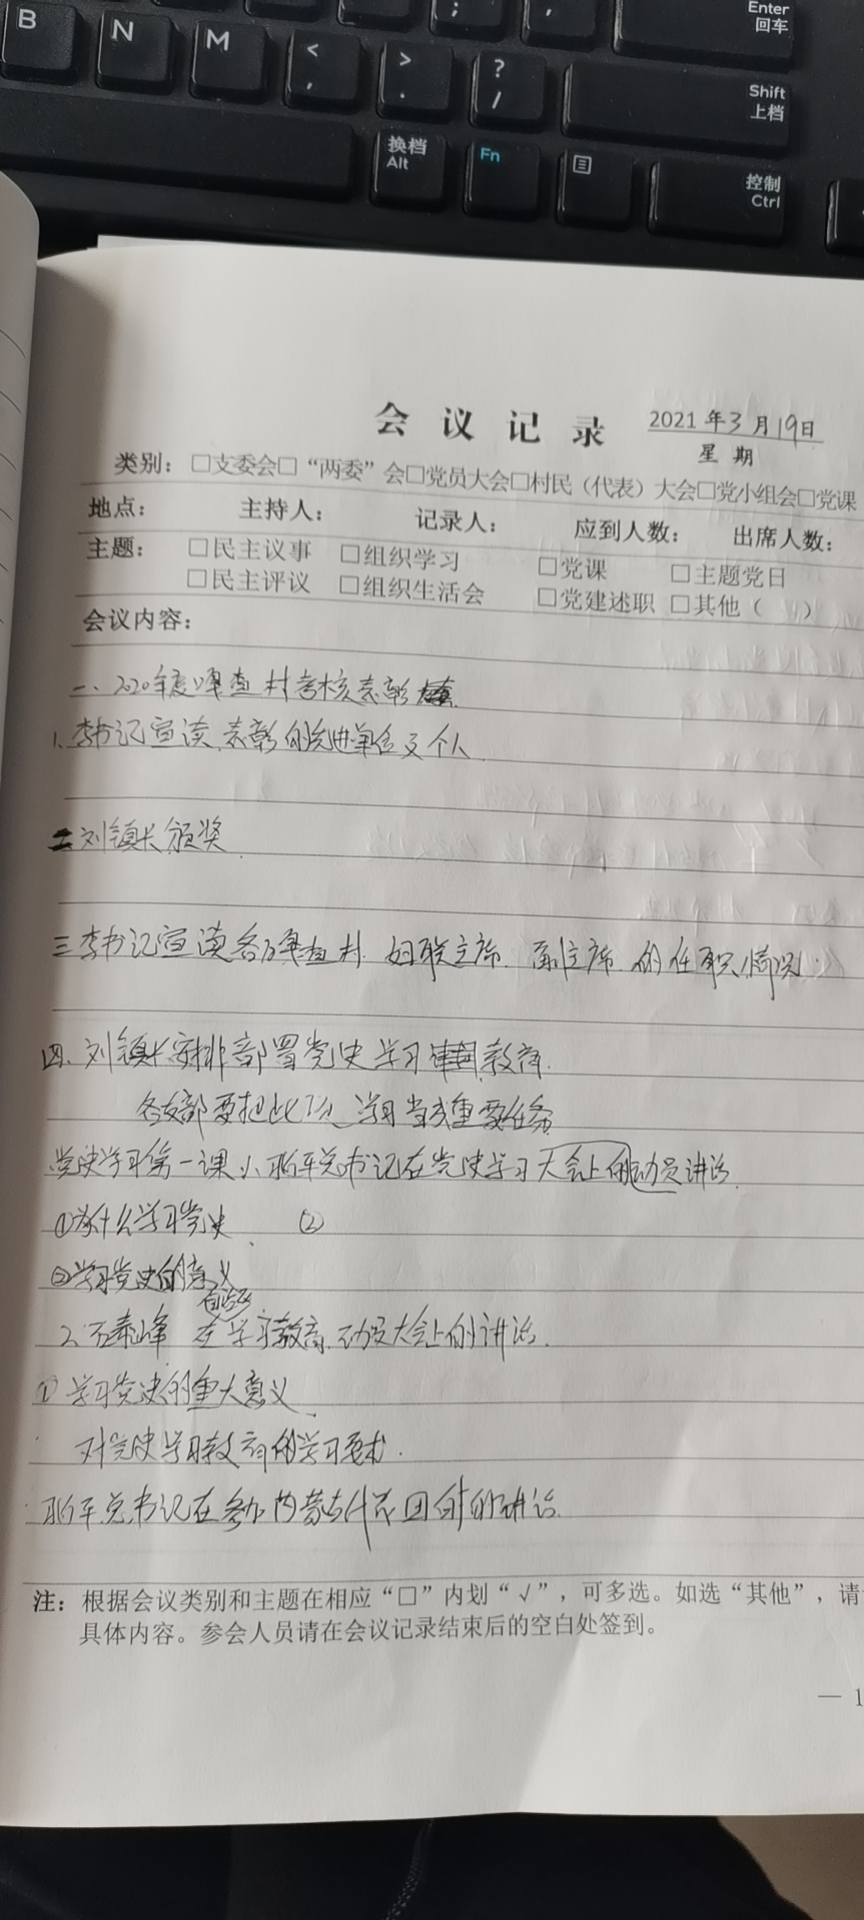 B N M < , > . ? / ; , Enter 回车
Shift 上档
换档 Alt Fn 控制 Ctrl
会议记录 2021年3月19日
星期
类别：□支委会□“两委”会□党员大会□村民（代表）大会□党小组会□党课
地点： 主持人： 记录人： 应到人数： 出席人数：
主题： □民主议事 □组织学习 □党课 □主题党日
□民主评议 □组织生活会 □党建述职 □其他（ ）
会议内容：
一、2020年度嘎查村考核表彰
1、李书记宣读表彰的先进单位及个人
二刘镇长颁奖
三李书记宣读各嘎查村 妇联主席、副主席 的任职情况.
四、刘镇长安排部署党史学习教育.
各支部要把此 学习当成重要任务
党史学习第一课 1、 总书记在党史学习大会上的动员讲话.
①为什么学习党史 ②
②学习党史的意义
2、石泰峰 在 学习教育 动员大会上的讲话.
① 学习党史的重大意义
对党史学习教育的学习要求.
总书记在参加内蒙古代表团时的讲话.
注：根据会议类别和主题在相应“□”内划“√”，可多选。如选“其他”，请
具体内容。参会人员请在会议记录结束后的空白处签到。
— 1